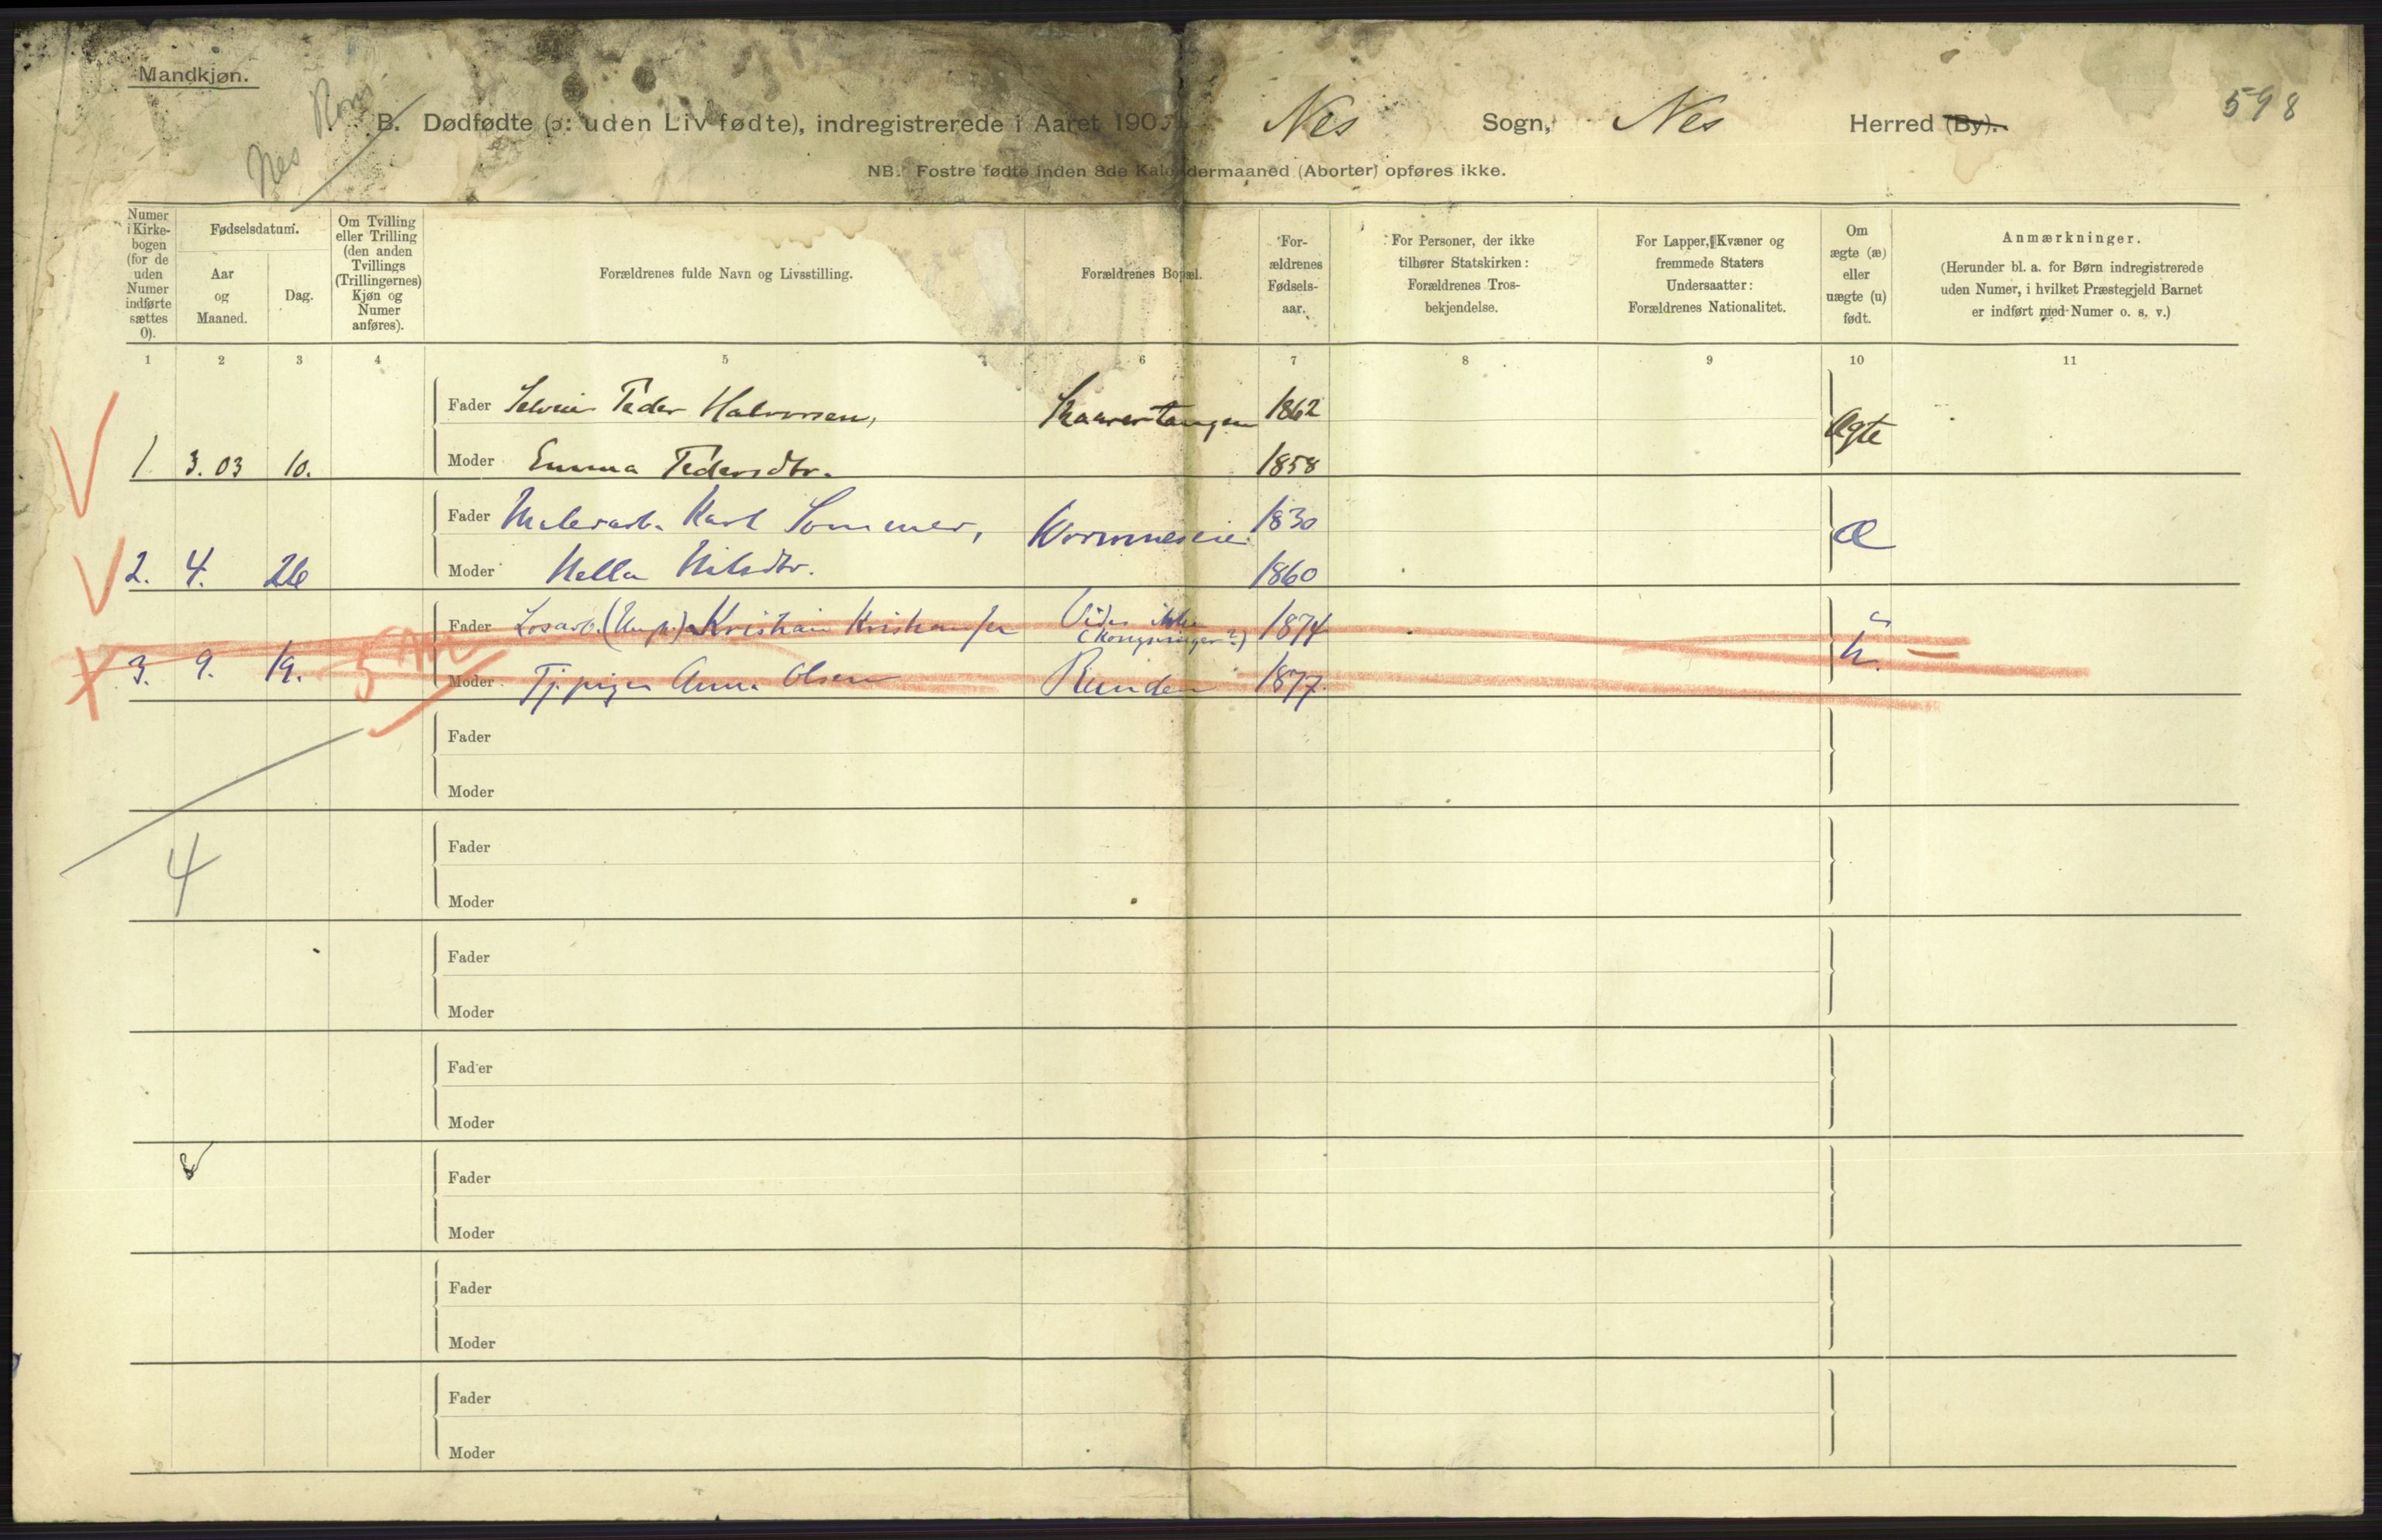 Mandkjøn.
598
Nes Rom.
B. Dødfødte (ɔ: uden Liv fødte), indregistrerede i Aaret 190 Nes Sogn, Nes Herred (By).
NB. Fostre fødte inden 8de Kalendermaaned (Aborter) opføres ikke.
Numer
i Kirke-
bogen
(for de
uden
Numer
indførte
sættes
0).
Fødselsdatum.
Aar
og
Maaned.
Dag.
Om Tvilling
eller Trilling
(den anden
Tvillings
(Trillingernes)
Kjøn og
Numer
anføres).
Forældrenes fulde Navn og Livsstilling.
Forældrenes Bopæl.
For-
ældrenes
Fødsels-
aar.
For Personer, der ikke
tilhører Statskirken:
Forældrenes Tros-
bekjendelse.
For Lapper, Kvæner og
fremmede Staters
Undersaatter:
Forældrenes Nationalitet.
Om
ægte (æ)
eller
uægte (u)
født.
Anmærkninger.
(Herunder bl. a. for Børn indregistrerede
uden Numer, i hvilket Præstegjeld Barnet
er indført med Numer o. s. v.)
1 2 3 4 5 6 7 8 9 10 11
Fader Selveier Peder Halvorsen, 1862
Ægte
1 3.03 10. Moder Emma Pedersdtr. 1858
Fader Malerarb. Karl Sommer, Wormneseie 1830
Æ
2. 4. 26 Moder Nella Nilsdtr. 1860
Fader Løsarb. (Ungk.) Kristian Kristiansen Vides ikke 1874
(Kongsvinger?)
u.
3. 9. 19. Moder Tj.pige Anna Olsen Runden 1877
Fader
Moder
4
Fader
Moder
Fader
Moder
Fader
Moder
Fader
Moder
Fader
Moder
Fader
Moder